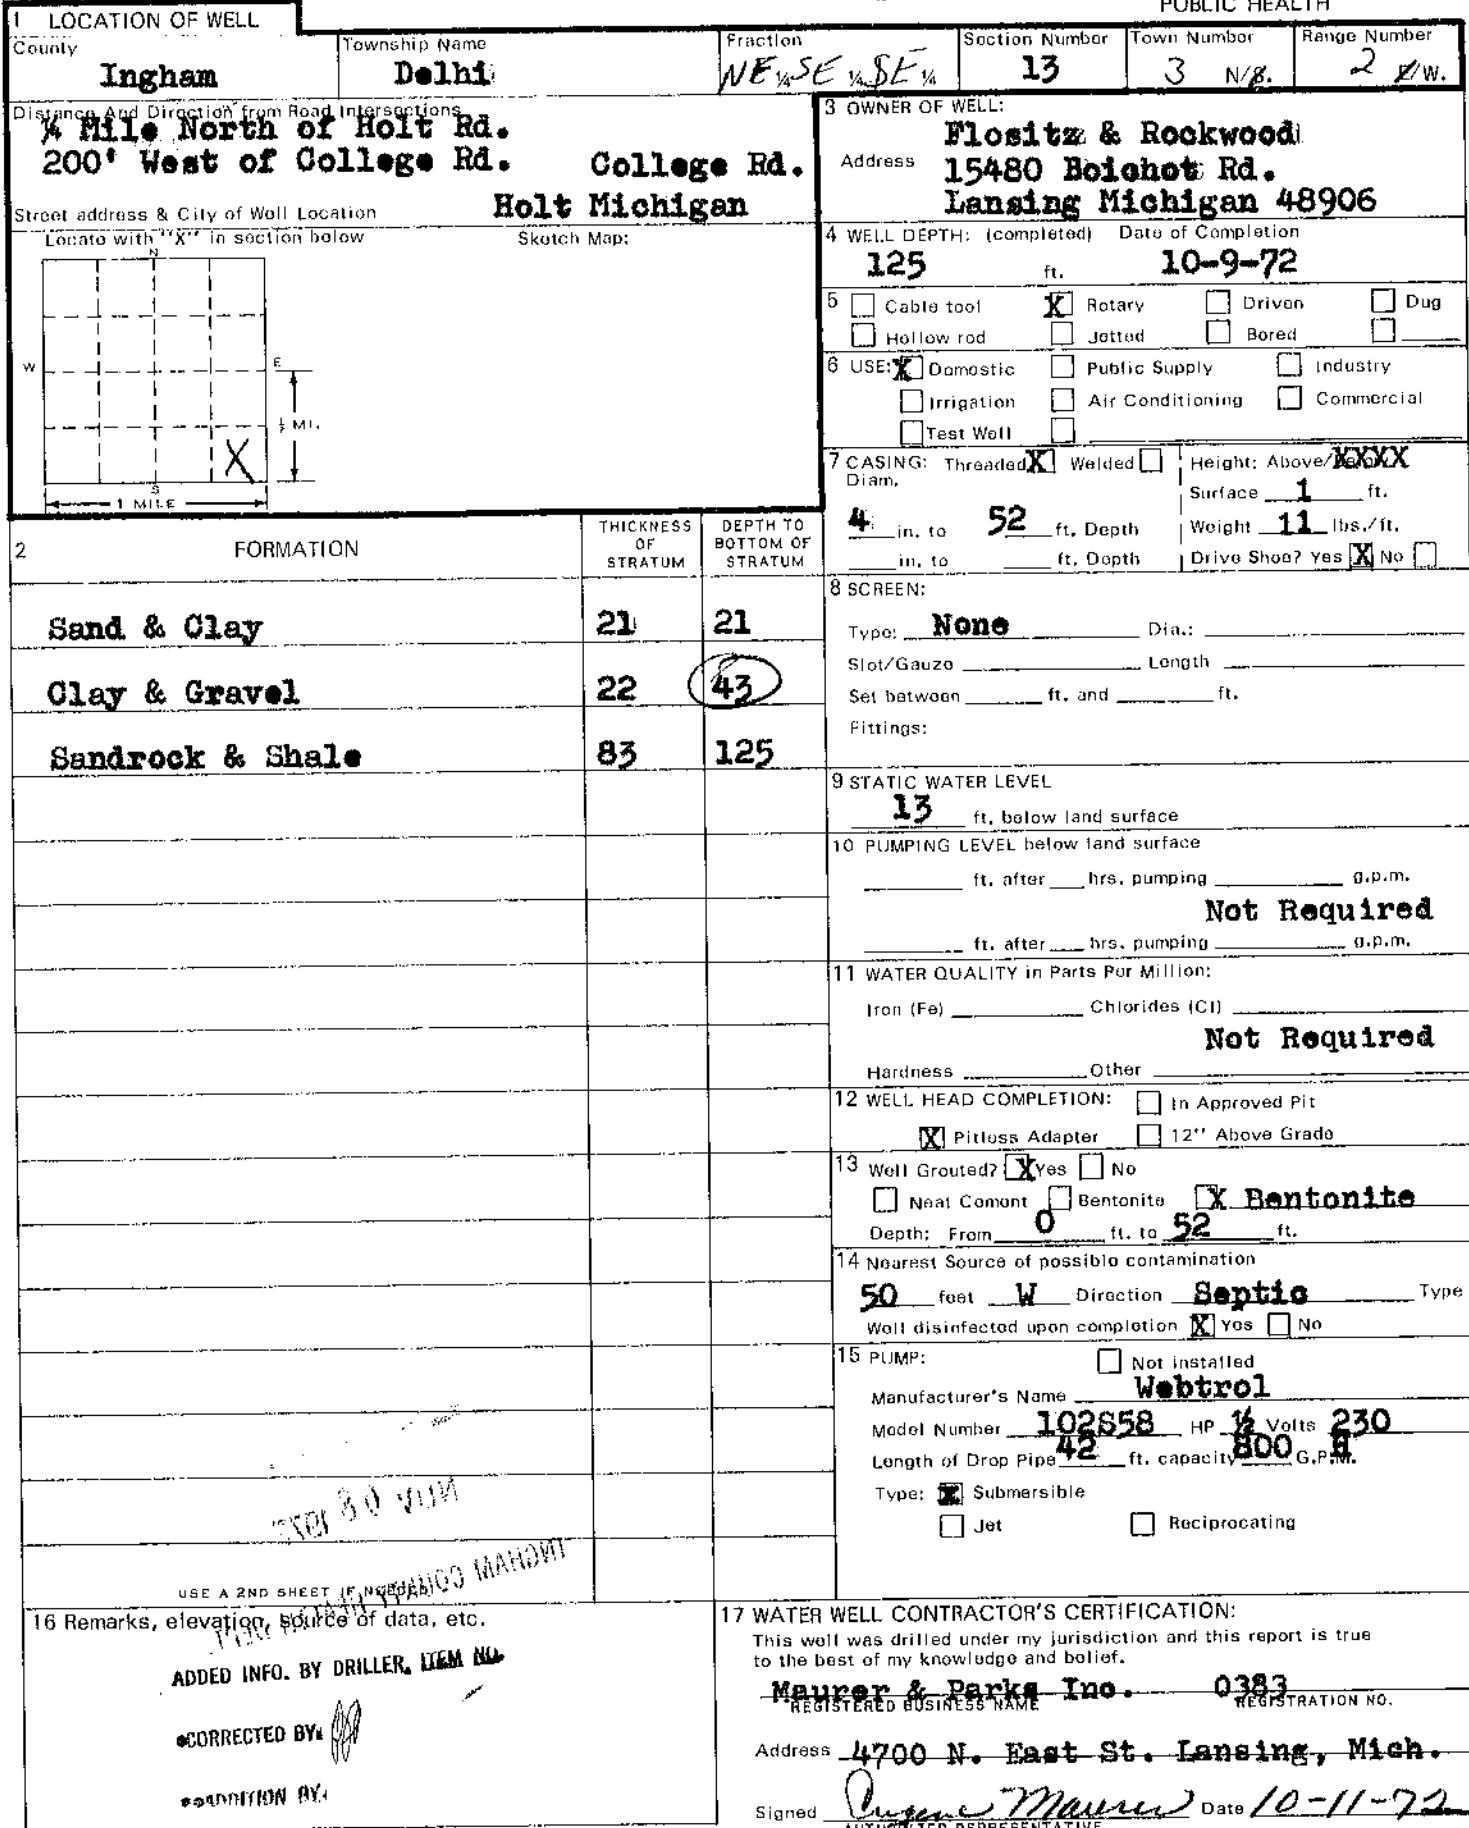 PUBLIC HEALTH
1 LOCATION OF WELL
County
Ingham
Township Name
Delhi
Fraction
NE ¼ SE ¼ SE ¼
Section Number
13
Town Number
3 N/S.
Range Number
2 E/W.
Distance And Direction from Road Intersections
¼ Mile North of Holt Rd.
200' West of College Rd.
College Rd.
Holt Michigan
Street address & City of Well Location
Locate with "X" in section below
Sketch Map:
N
W
E
½ MI.
X
S
1 MILE
3 OWNER OF WELL:
Flositz & Rockwood
Address 15480 Boichot Rd.
Lansing Michigan 48906
4 WELL DEPTH: (completed) Date of Completion
125 ft. 10-9-72
5 Cable tool X Rotary Driven Dug
Hollow rod Jetted Bored
6 USE: X Domestic Public Supply Industry
Irrigation Air Conditioning Commercial
Test Well
7 CASING: Threaded X Welded
Diam.
Height: Above/Below XXXX
Surface 1 ft.
4 in. to 52 ft. Depth
Weight 11 lbs./ft.
in. to ft. Depth
Drive Shoe? Yes X No
2 FORMATION
THICKNESS OF STRATUM
DEPTH TO BOTTOM OF STRATUM
Sand & Clay 21 21
Clay & Gravel 22 43
Sandrock & Shale 83 125
8 SCREEN:
Type: None Dia.:
Slot/Gauze Length
Set between ft. and ft.
Fittings:
9 STATIC WATER LEVEL
13 ft. below land surface
10 PUMPING LEVEL below land surface
ft. after hrs. pumping g.p.m.
Not Required
ft. after hrs. pumping g.p.m.
11 WATER QUALITY in Parts Per Million:
Iron (Fe) Chlorides (Cl)
Not Required
Hardness Other
12 WELL HEAD COMPLETION: In Approved Pit
X Pitless Adapter 12" Above Grade
13 Well Grouted? X Yes No
Neat Cement Bentonite X Bentonite
Depth: From 0 ft. to 52 ft.
14 Nearest Source of possible contamination
50 feet W Direction Septic Type
Well disinfected upon completion X Yes No
15 PUMP: Not installed
Manufacturer's Name Webtrol
Model Number 102S58 HP ½ Volts 230
Length of Drop Pipe 42 ft. capacity 800 G.P.H.
Type: X Submersible
Jet Reciprocating
NOV 08 1972
INGHAM COUNTY HEALTH DEPT.
USE A 2ND SHEET IF NEEDED
16 Remarks, elevation, source of data, etc.
ADDED INFO. BY DRILLER, ITEM NO.
*CORRECTED BY:
**ADDITION BY:
17 WATER WELL CONTRACTOR'S CERTIFICATION:
This well was drilled under my jurisdiction and this report is true
to the best of my knowledge and belief.
Maurer & Parks Inc. 0383
REGISTERED BUSINESS NAME REGISTRATION NO.
Address 4700 N. East St. Lansing, Mich.
Signed Eugene Maurer Date 10-11-72
AUTHORIZED REPRESENTATIVE